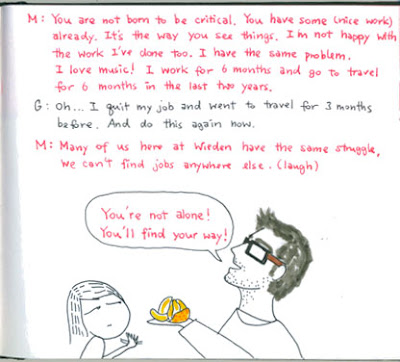 M: You are not born to be critical. You have some (nice work)
already. It's the way you see things. I'm not happy with
the work I've done too. I have the same problem.
I love music! I work for 6 months and go to travel
for 6 months in the last two years.
G: Oh... I quit my job and went to travel for 3 months
before. And do this again now.
M: Many of us here at Wieden have the same struggle,
we can't find jobs anywhere else. (laugh)
You're not alone!
You'll find your way!